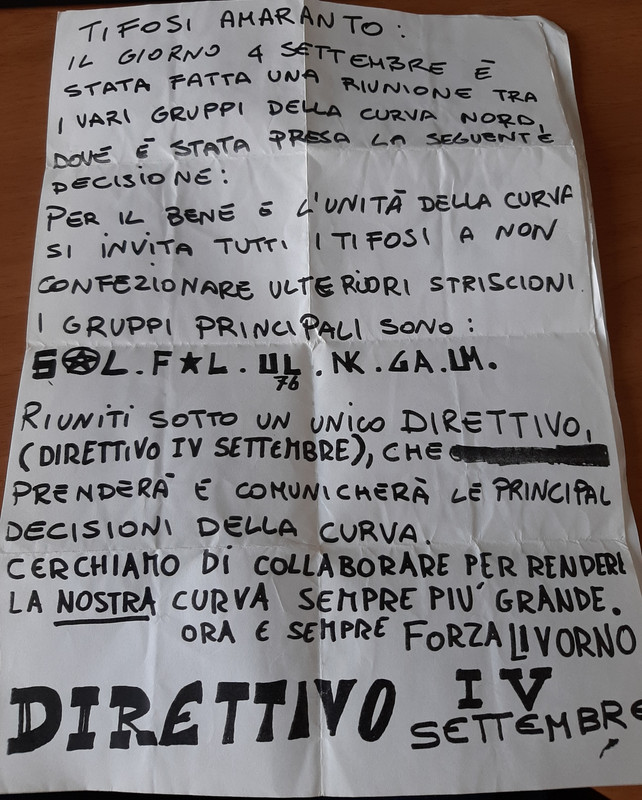 TIFOSI AMARANTO:
IL GIORNO 4 SETTEMBRE È
STATA FATTA UNA RIUNIONE TRA
I VARI GRUPPI DELLA CURVA NORD,
DOVE È STATA PRESA LA SEGUENTE
DECISIONE:
PER IL BENE E L'UNITÀ DELLA CURVA
SI INVITA TUTTI I TIFOSI A NON
CONFEZIONARE ULTERIORI STRISCIONI.
I GRUPPI PRINCIPALI SONO:
S★L.F★L.UL.NK.GA.UM.
76
RIUNITI SOTTO UN UNICO DIRETTIVO,
(DIRETTIVO IV SETTEMBRE), CHE
PRENDERÀ E COMUNICHERÀ LE PRINCIPAL
DECISIONI DELLA CURVA.
CERCHIAMO DI COLLABORARE PER RENDERE
LA NOSTRA CURVA SEMPRE PIU' GRANDE.
ORA E SEMPRE FORZA LIVORNO
DIRETTIVO IV
SETTEMBRE